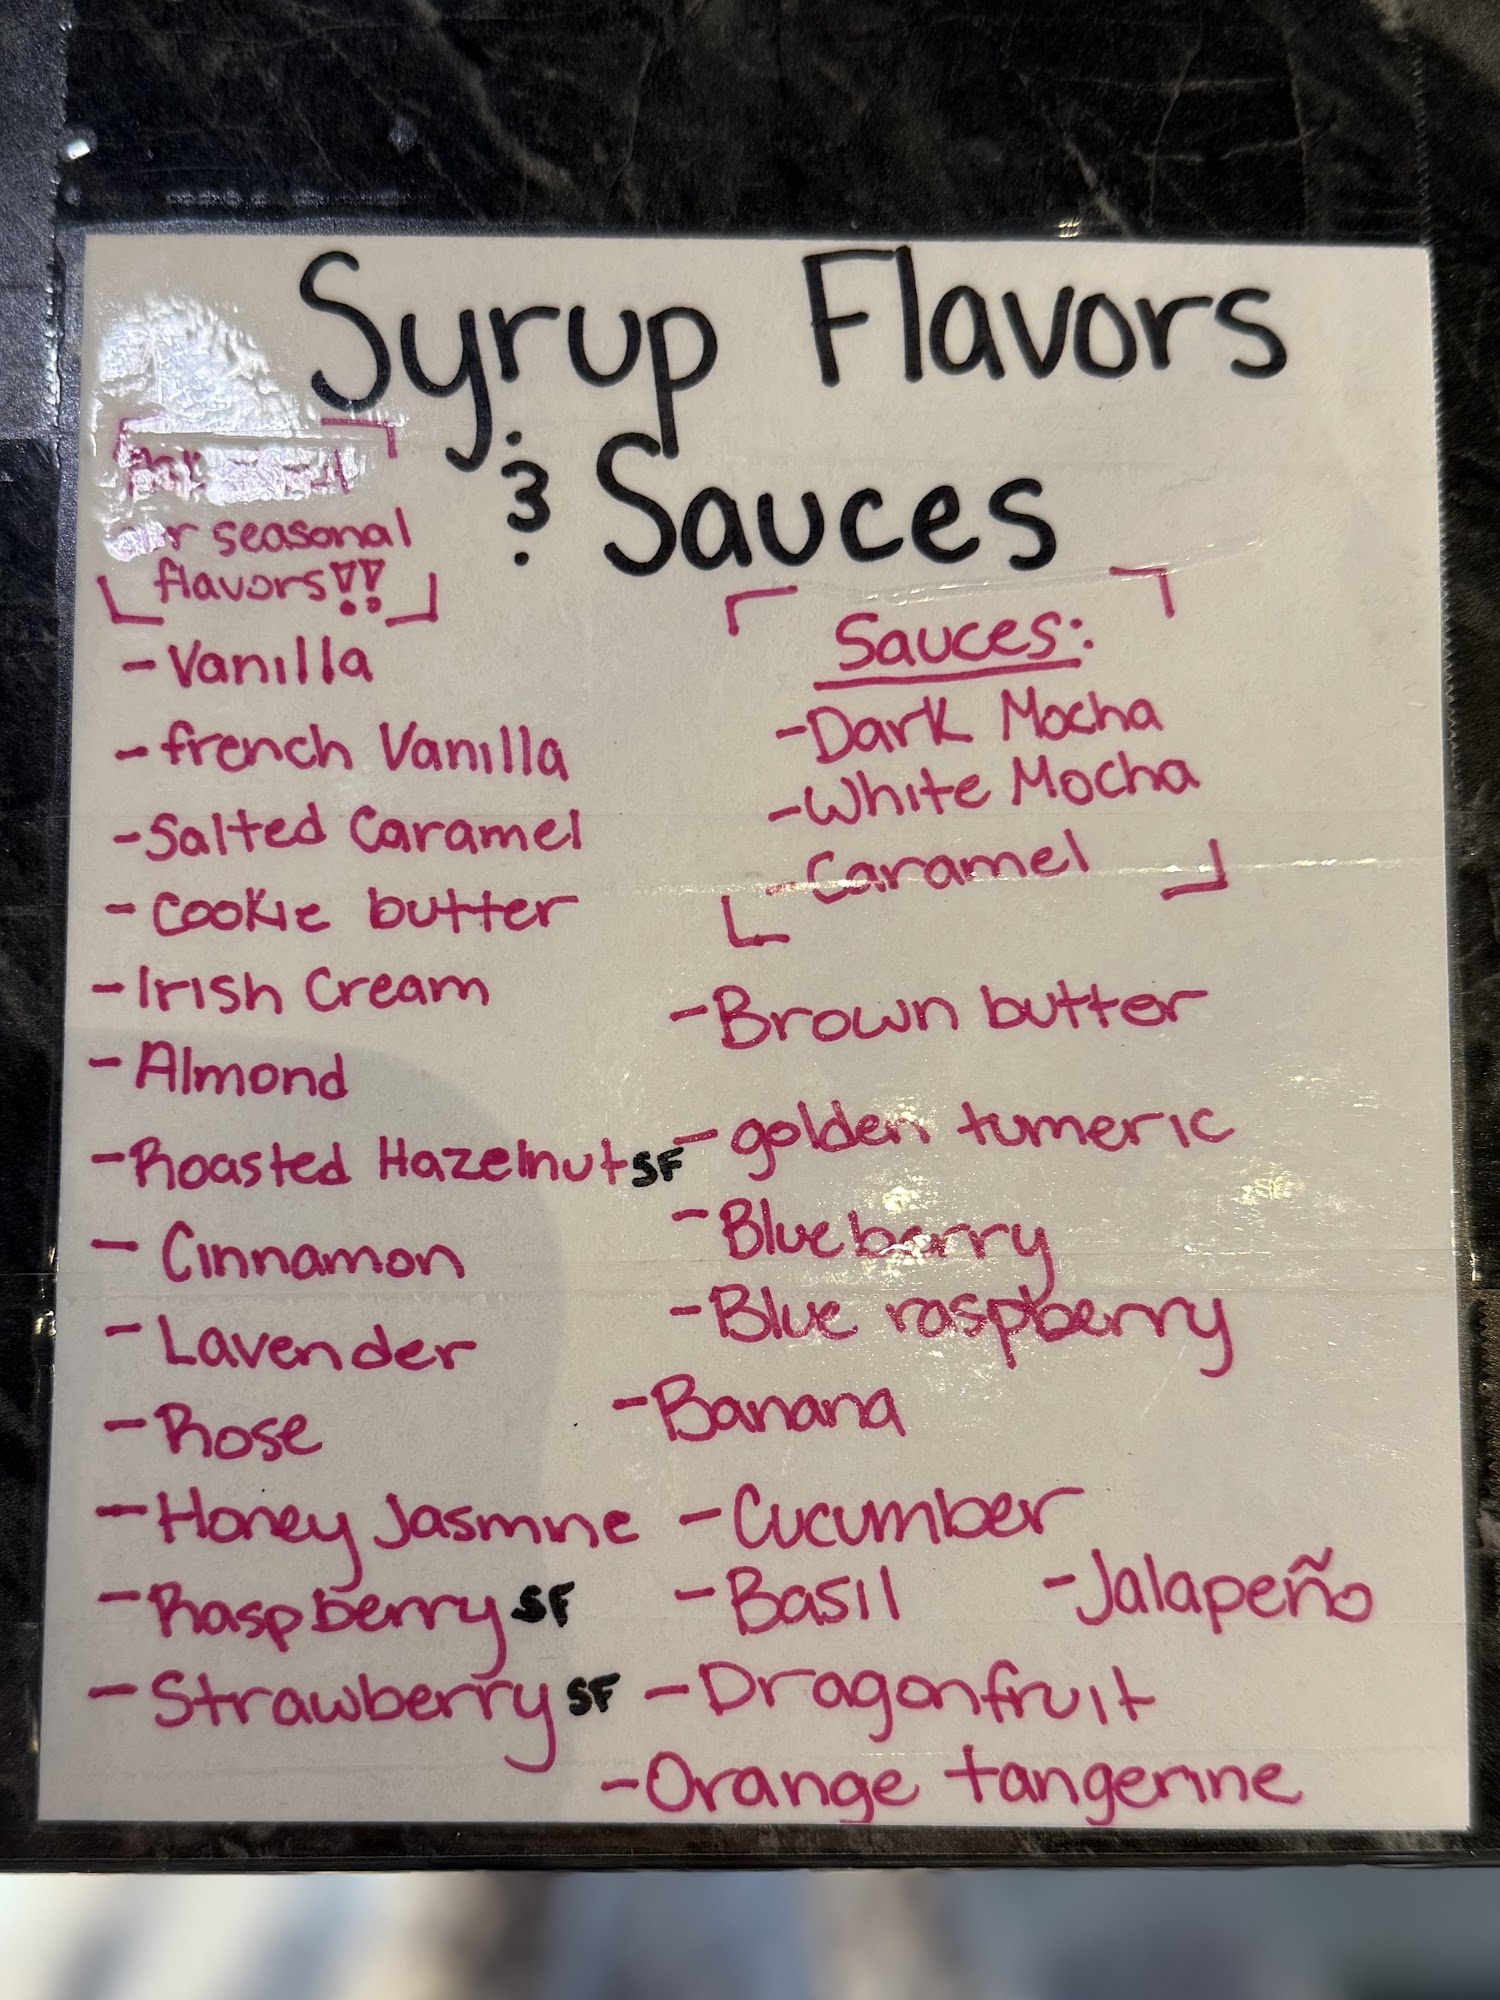 Syrup Flavors
& Sauces
our seasonal
flavors!!
- Vanilla
- french Vanilla
- Salted Caramel
- Cookie butter
- Irish Cream
- Almond
- Roasted Hazelnut SF
- Cinnamon
- Lavender
- Rose
- Honey Jasmine
- Raspberry SF
- Strawberry SF
Sauces:
- Dark Mocha
- White Mocha
- Caramel
- Brown butter
- golden tumeric
- Blueberry
- Blue raspberry
- Banana
- Cucumber
- Basil - Jalapeño
- Dragonfruit
- Orange tangerine